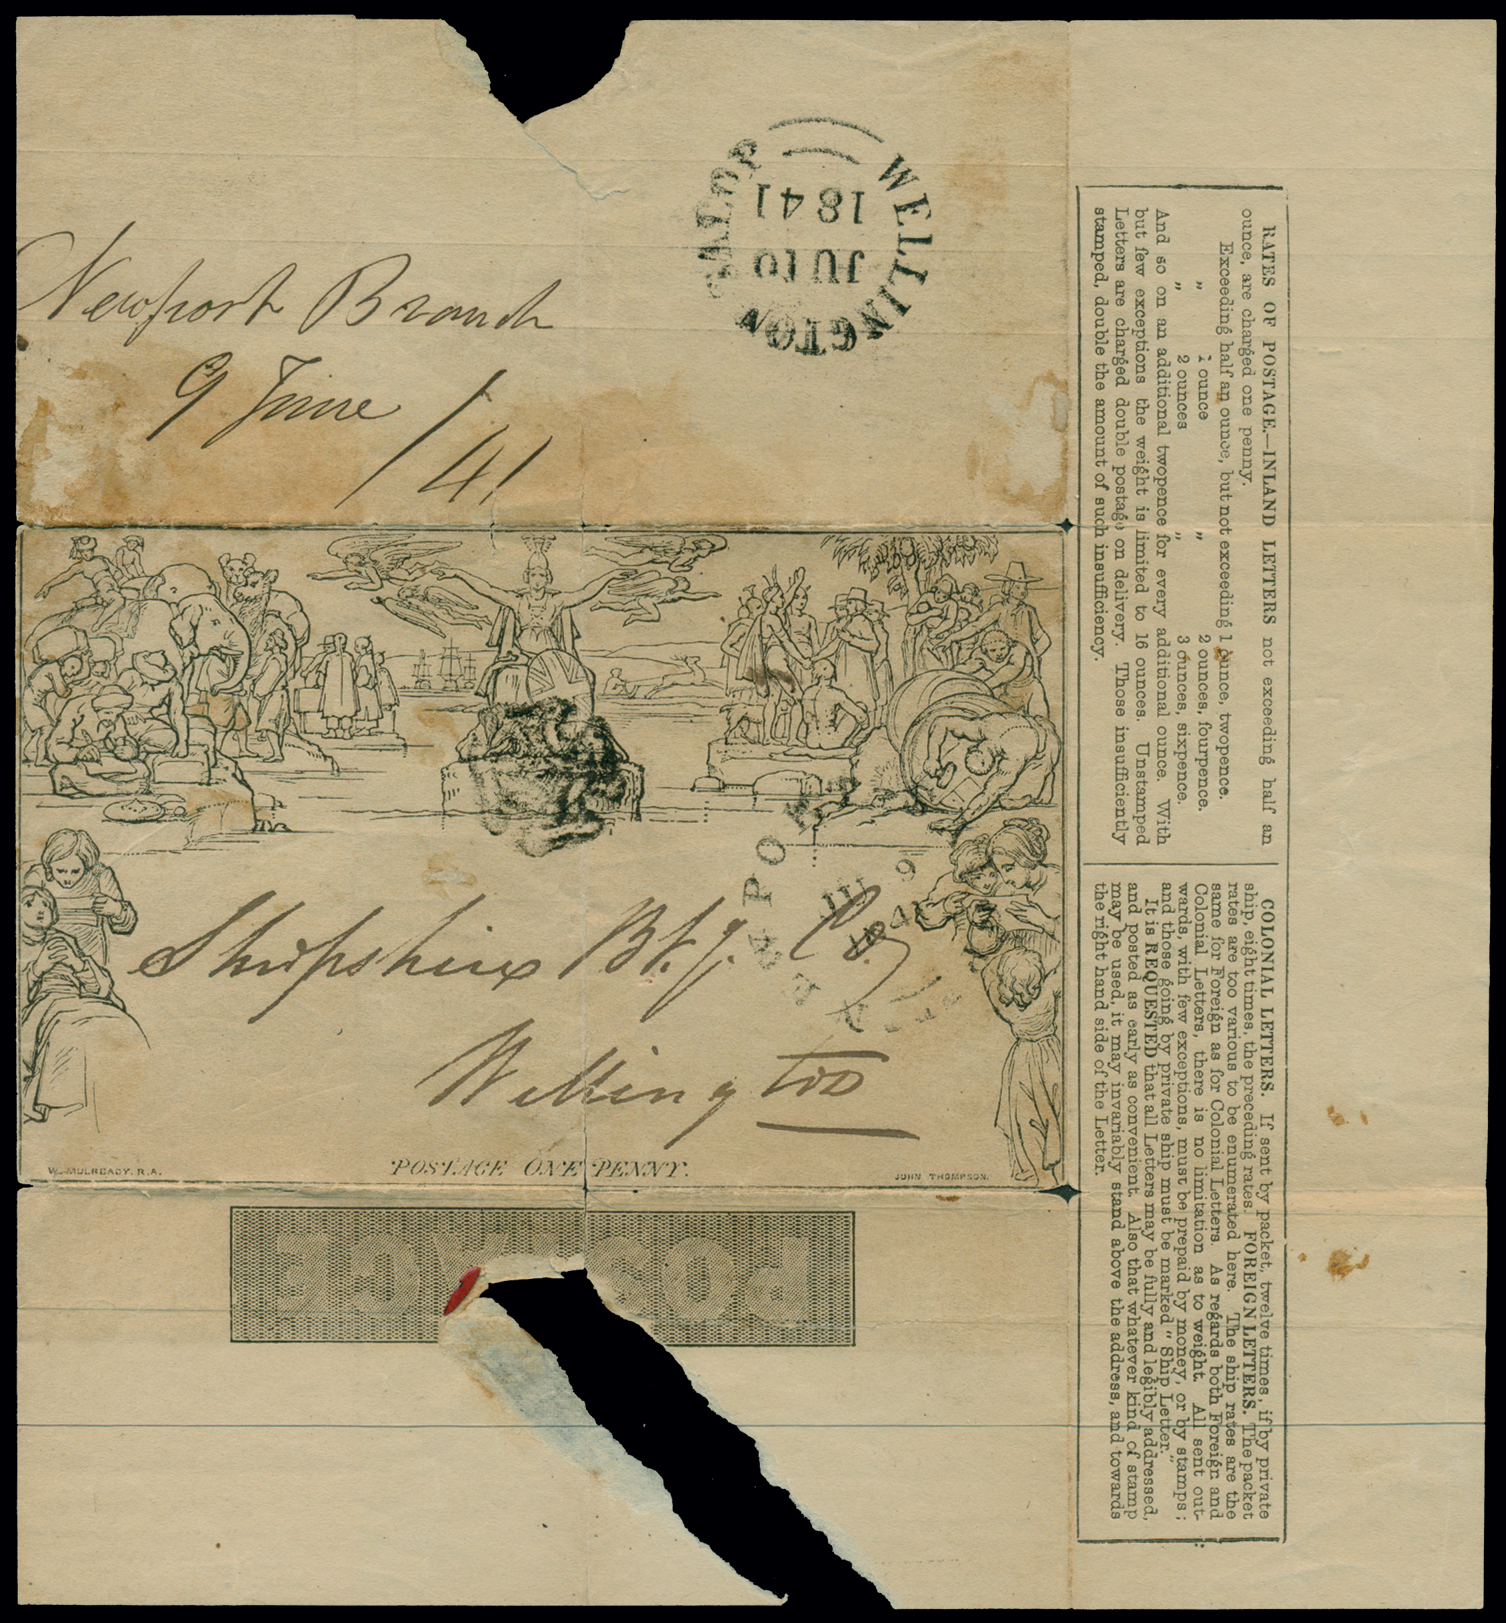 WELLINGTON SALOP
JU 10
1841
Newport Branch
9 June / 41
Shropshire Bkg. Co.
Wellington
W. MULREADY. R.A.
POSTAGE ONE PENNY.
JOHN THOMPSON.
POSTAGE
NEWPORT
JU 9
1841
RATES OF POSTAGE.—INLAND LETTERS not exceeding half an
ounce, are charged one penny.
Exceeding half an ounce, but not exceeding 1 ounce, twopence.
„ 1 ounce „ 2 ounces, fourpence.
„ 2 ounces „ 3 ounces, sixpence.
And so on an additional twopence for every additional ounce. With
but few exceptions the weight is limited to 16 ounces. Unstamped
Letters are charged double postage on delivery. Those insufficiently
stamped, double the amount of such insufficiency.
COLONIAL LETTERS. If sent by packet, twelve times, if by private
ship, eight times, the preceding rates. FOREIGN LETTERS. The packet
rates are too various to be enumerated here. The ship rates are the
same for Foreign as for Colonial Letters. As regards both Foreign and
Colonial Letters, there is no limitation as to weight. All sent out-
wards, with few exceptions, must be prepaid by money, or by stamps;
and those going by private ship must be marked "Ship Letter."
It is REQUESTED that all Letters may be fully and legibly addressed,
and posted as early as convenient. Also that whatever kind of stamp
may be used, it may invariably stand above the address, and towards
the right hand side of the Letter.